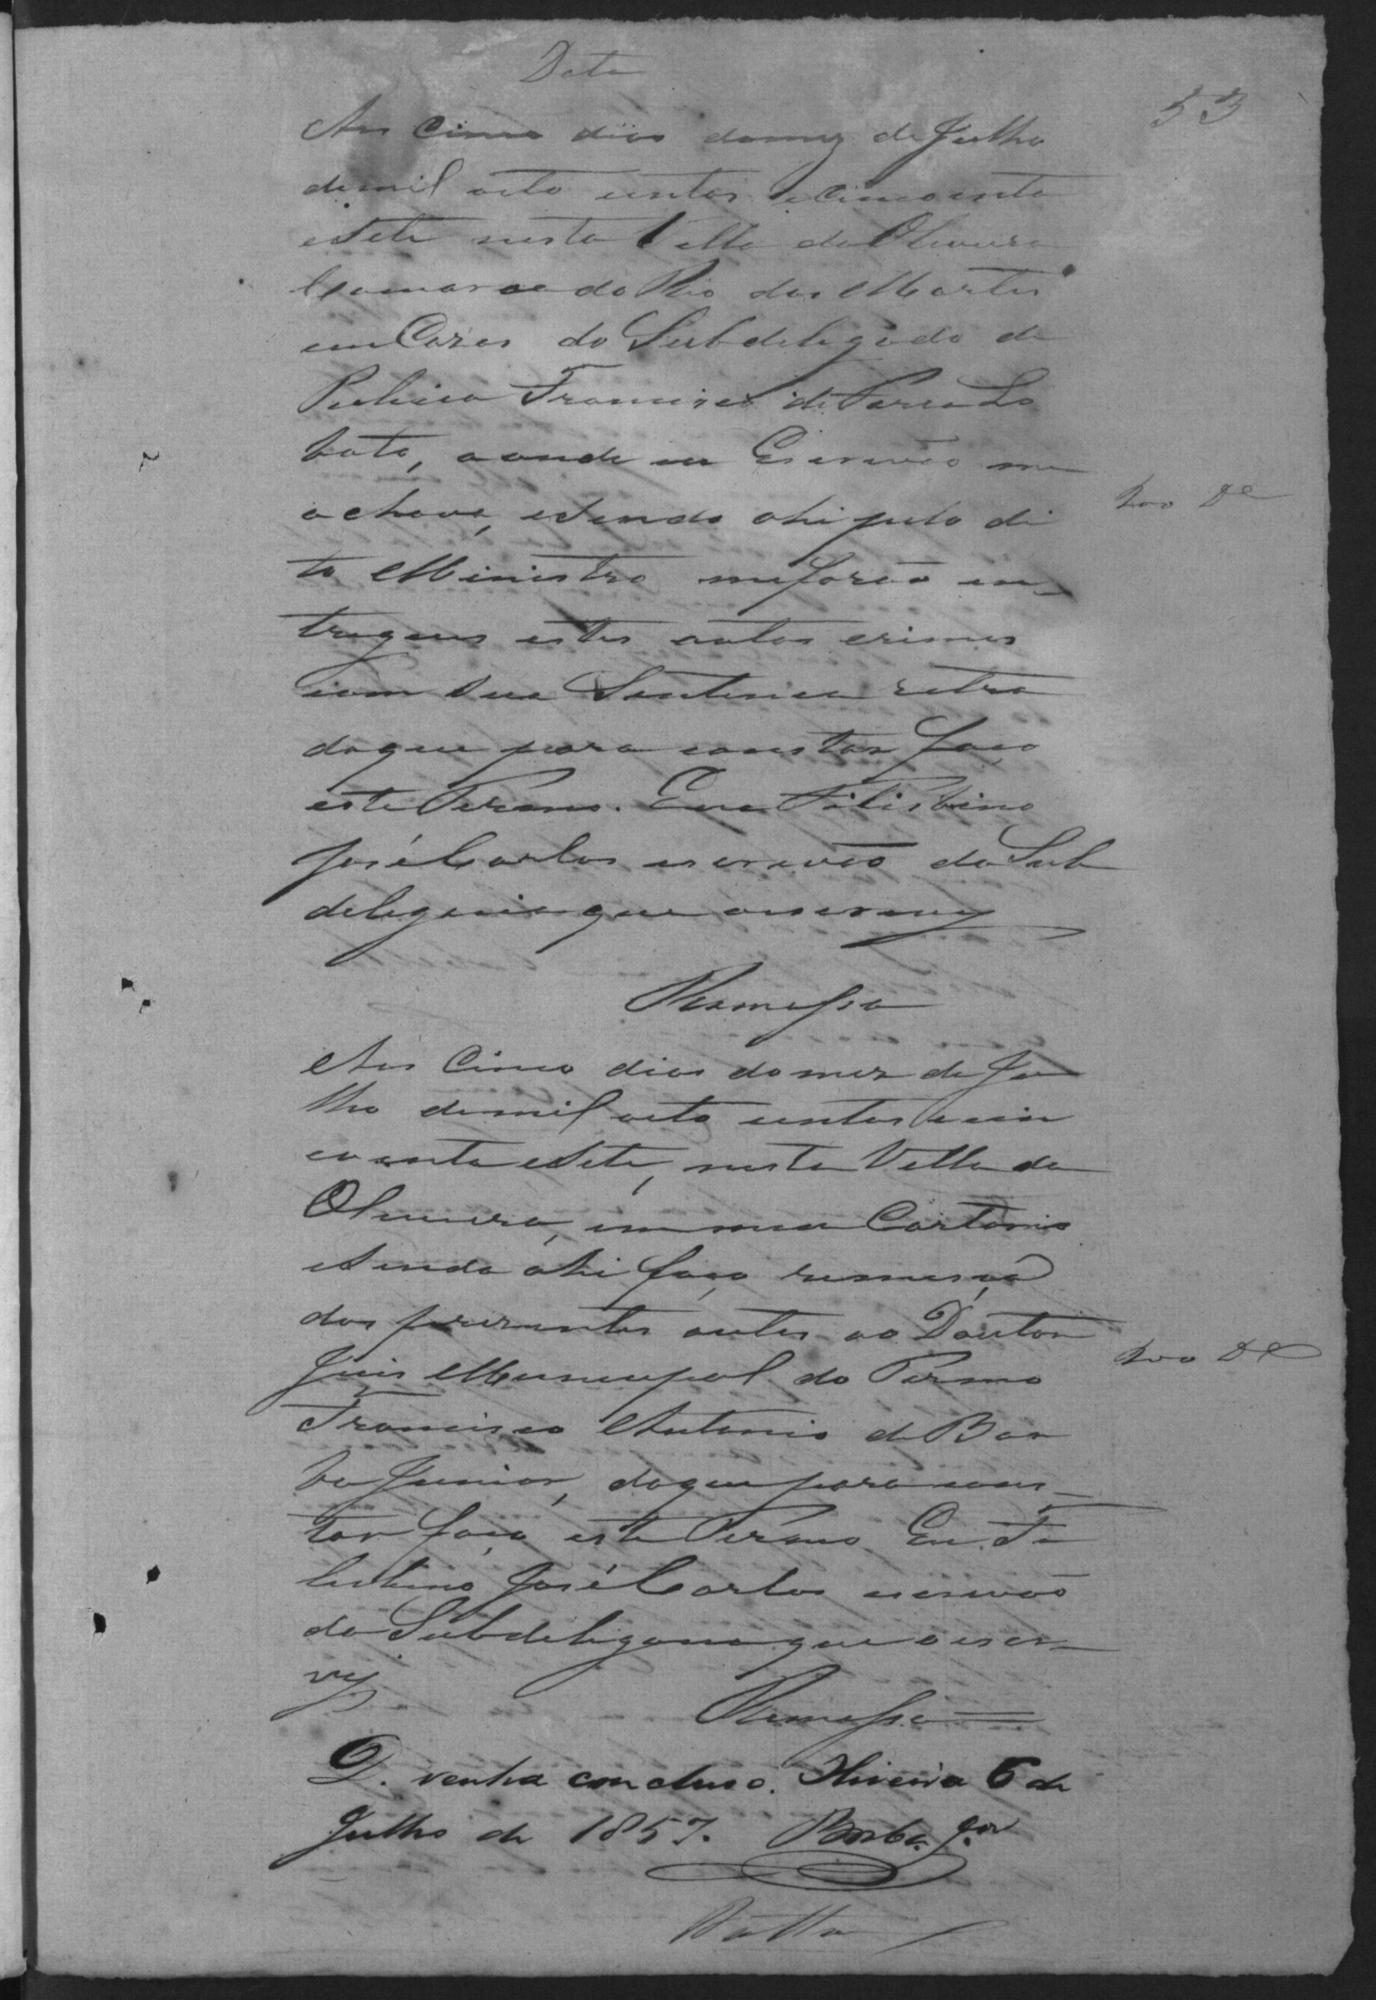 Data
53
Aos Cinco dias domez de Julho
demil oito centos e cincoenta
esete nesta Villa da Oliveira
Comarca do Rio das Mortes
em Cazas do Subdelegado de
Policia Francisco de Paula Lo
bato, aonde eu Escrivão me
achava, esendo ahi pelo di
to Ministro meforão en-
tregues estes autos crimes
com sua Sentenca retro
doque para constar faço
este Termo. Eu
José Carlos escrivão da Sub
delegacia que oescrevy
Remessa
Aos Cinco dias domez de Ju
lho demil oito centos e cin
coenta esete, nesta Villa da
Oliveira, em meu Cartorio
esendo ahi faço remessa
dos prezentes autos ao Doutor
Juis Municipal do Termo
Francisco Antonio de Bor
ba Junior, doque para cons-
tar faço este Termo. Eu
José Carlos escrivão
da Subdelegacia que oescre-
vy
Remessa
D. venha concluso. Oliveira 6 de
Julho de 1857. Borba Jor